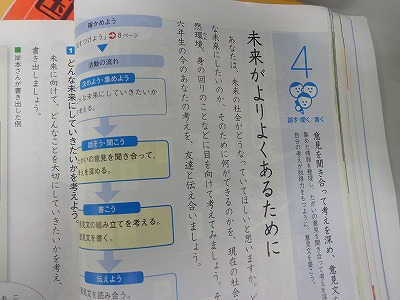 4
話す・聞く/書く
意見を聞き合って考えを深め、意見文
集めた情報を整理し、たがいの意見を聞き合って考えを深
自分の考えが説得力をもつように、意見文を書こう。
未来がよりよくあるために
あなたは、未来の社会がどうなっていてほしいと思いますか。ど
な未来にしたいのか、そのために何ができるのかを、現在の社会
然環境、身の回りのことなどに目を向けて考えてみましょう。そ
六年生の今のあなたの考えを、友達と伝え合いましょう。
確かめよう
をつけよう」 8ページ
活動の流れ
決めよう・集めよう
んな未来にしていきたいか
考える。
話そう・聞こう
がいの意見を聞き合って、
えを深める。
書こう
意見文の組み立てを考える。
意見文を書く。
伝えよう
意見文を読み合う。
1 どんな未来にしていきたいかを考えよう
未来に向けて、どんなことを大切にしていきたいかを考え、
書き出しましょう。
■岸本さんが書き出した例